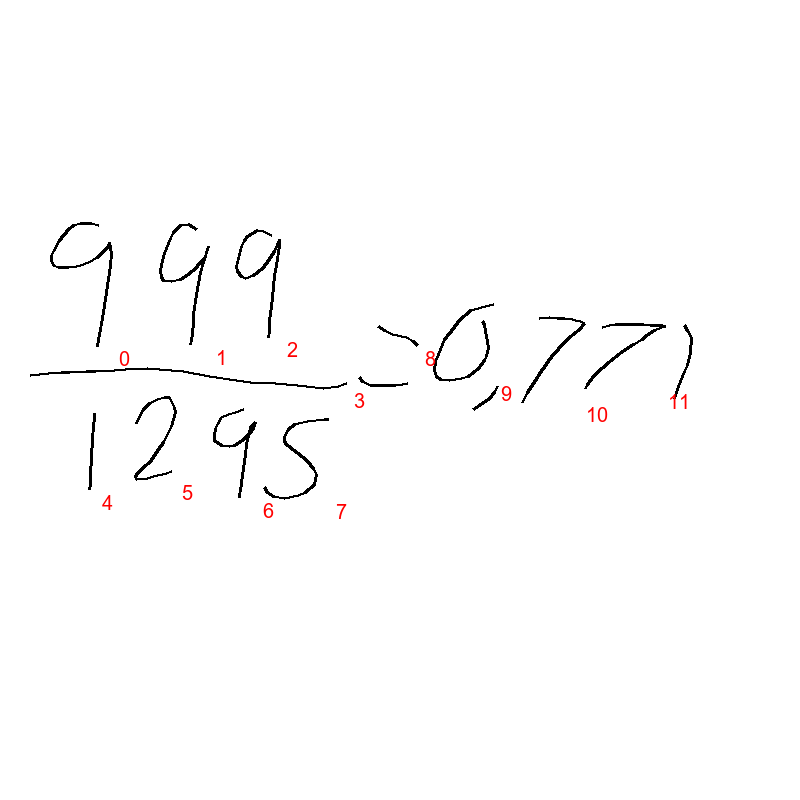 999
1295
= 0,771
0
1
2
3
4
5
6
7
8
9
10
11